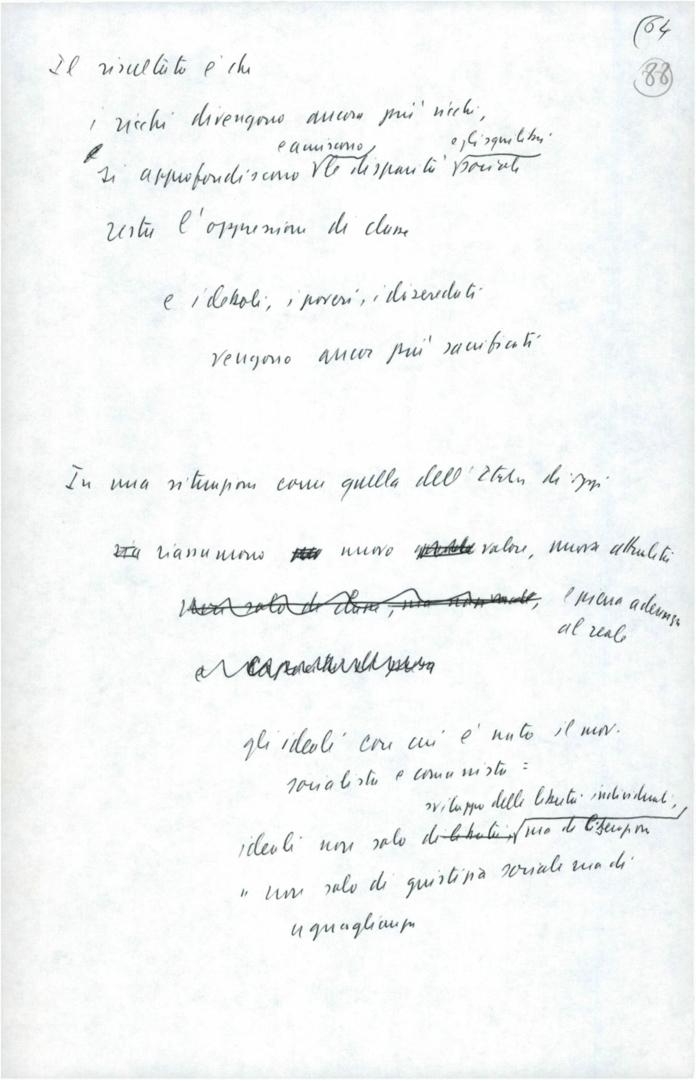 (64
88
Il risultato è che
i ricchi divengono ancora più ricchi,
e aumentano, e gli squilibri
si approfondiscono le disparità sociali
resta l'oppressione di classe
e i deboli, i poveri, i diseredati
vengono ancor più sacrificati
In una situazione come quella dell'Italia di oggi
riassumono nuovo valore, nuova attualità
non solo di classe, ma non reale, e piena aderenza
al reale
e
gli ideali con cui è nato il mov.
socialista e comunista:
sviluppo delle libertà individuali,
ideali non solo di libertà, ma di liberazione
" non solo di giustizia sociale ma di
uguaglianza